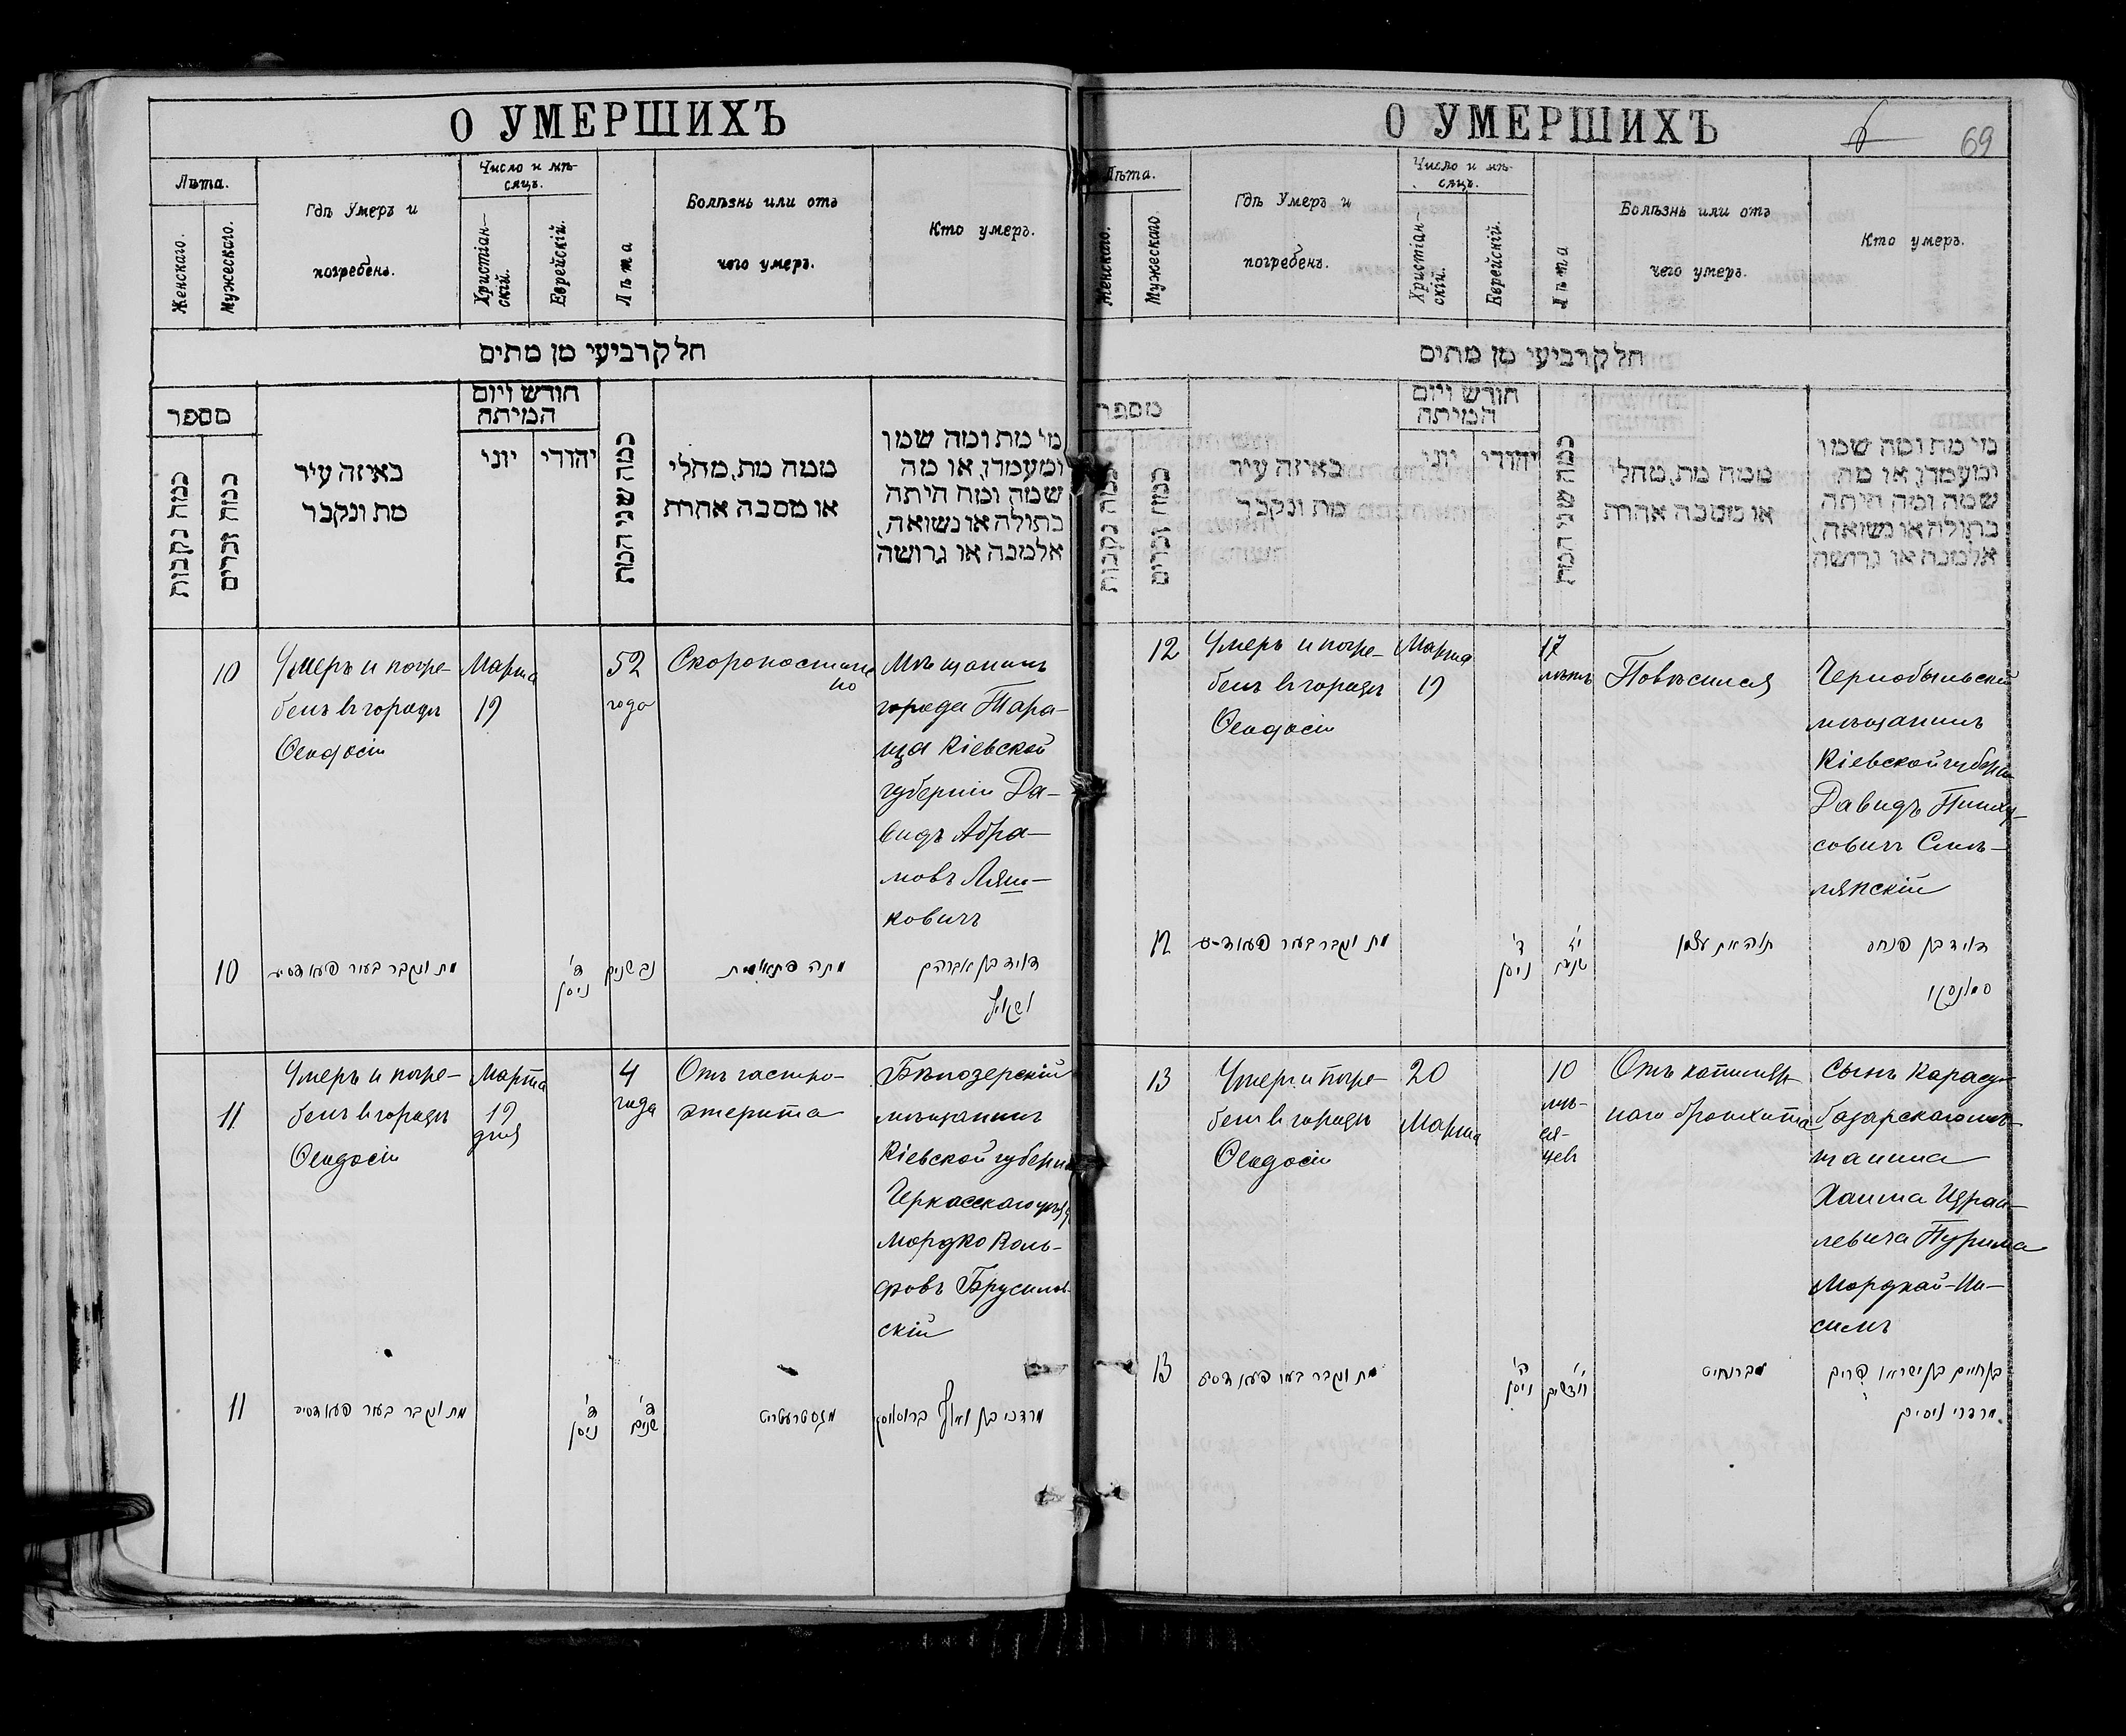 О УМЕРШИХЪ
Лѣта.
Женскаго.
Мужескаго.
Гдѣ Умеръ и
погребенъ.
Число и мѣ-
сяцъ.
Христіан-
скій.
Еврейскій.
Лѣта
Болѣзнь или отъ
чего умеръ.
Кто умеръ.
חלק רביעי מן מתים
מספר
כמה נקבות
כמה זכרים
באיזה עיר
מת ונקבר
חורש ויום
המיתה
יוני
יהודי
כמה שני המת
ממה מת, מחלי
או מסבה אחרת
מי מת ומה שמו
ומעמדו, או מה
שמה ומה היתה
בתולה או נשואה,
אלמנה או גרושה
10
Умеръ и погре-
бенъ въ городѣ
Ѳеодосіи
Марта
19
52
года
Скоропостижно
Мѣщанинъ
города Тара-
ща Кіевской
губерніи Да-
видъ Абра-
мовъ Ляш-
ковичъ
10
מת ונקבר בעיר פעאדסיע
ד'
ניסן
נב שנים
מתה פתאומית
דוד בן אברהם
11
Умеръ и погре-
бенъ въ городѣ
Ѳеодосіи
Марта
19
дня
4
года
Отъ гастро-
энтерита
Бѣлозерскій
мѣщанинъ
Кіевской губерніи
Черкасскаго уѣзда
Мордко Воль-
фовъ Брусилов-
скій
11
מת ונקבר בעיר פעאדסיע
ד'
ניסן
ד'
שנים
מרדכי בן וואלף
О УМЕРШИХЪ
69
Лѣта.
Женскаго.
Мужескаго.
Гдѣ Умеръ и
погребенъ.
Число и мѣ-
сяцъ.
Христіан-
скій.
Еврейскій.
Лѣта
Болѣзнь или отъ
чего умеръ.
Кто умеръ.
חלק רביעי מן מתים
מספר
כמה נקבות
כמה זכרים
באיזה עיר
מת ונקבר
חורש ויום
המיתה
יוני
יהודי
כמה שני המת
ממה מת, מחלי
או מסבה אחרת
מי מת ומה שמו
ומעמדו, או מה
שמה ומה היתה
בתולה או נשואה,
אלמנה או גרושה
12
Умеръ и погре-
бенъ въ городѣ
Ѳеодосіи
Марта
19
17
лѣтъ
Повѣсился
Чернобыльскій
мѣщанинъ
Кіевской губерніи
Давидъ Пинху-
совичъ Смѣ-
лянскій
12
מת ונקבר בעיר
ד'
ניסן
יז
שנים
תלה את עצמו
דוד בן פנחס
13
Умеръ и погре-
бенъ въ городѣ
Ѳеодосіи
20
Марта
10
мѣ-
ся-
цевъ
Отъ капиляр-
наго бронхита
Сынъ Карасу-
базарскаго мѣ-
щанина
Хаима Израи-
левича Пурима
Мордхай-Ни-
симъ
13
מת ונקבר בעיר פעאדסיע
ה'
ניסן
י'
חדשים
מברנחיט
בן חיים בן ישראל פורים
מרדכי ניסים